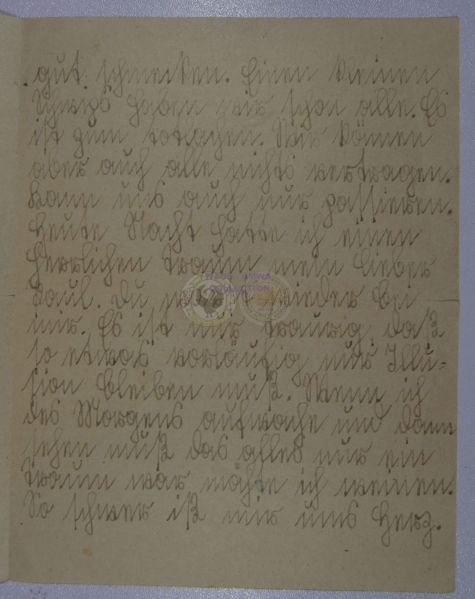 gut. schmecken. Einen kleinen
Schwips haben wir schon alle. Es
ist zum totlagen. Wir können
aber auch alle nichts vertragen.
Kann uns auch nur passieren.
Heute Nacht hatte ich einen
herrlichen Traum mein lieber
Paul. Du warst wieder bei
mir. Es ist nur traurig, daß
so etwas vorläufig nur Illu-
sion bleiben muß. Wenn ich
des Morgens aufwache und dann
sehen muß das alles nur ein
Traum war möchte ich weinen.
So schwer iß mir ums Herz.
COLLECTION